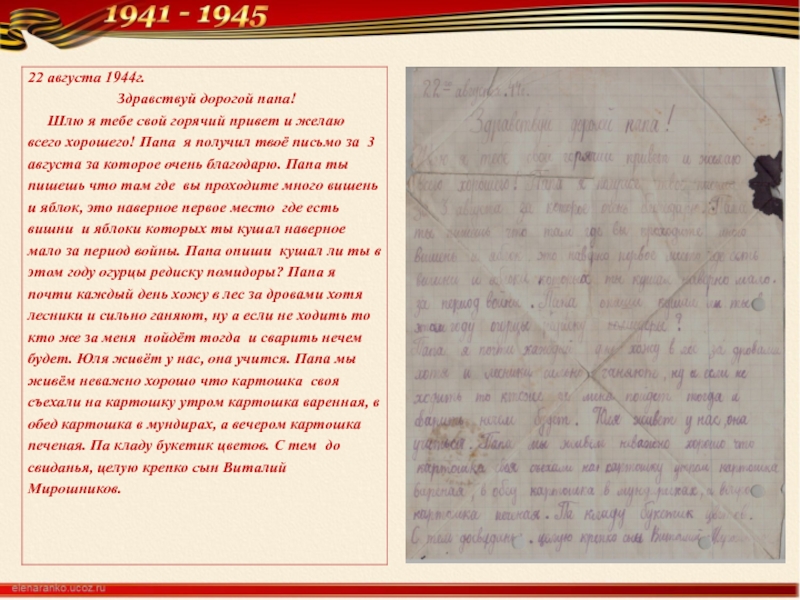 1941 - 1945
22 августа 1944г.
Здравствуй дорогой папа!
Шлю я тебе свой горячий привет и желаю
всего хорошего! Папа я получил твоё письмо за 3
августа за которое очень благодарю. Папа ты
пишешь что там где вы проходите много вишень
и яблок, это наверное первое место где есть
вишни и яблоки которых ты кушал наверное
мало за период войны. Папа опиши кушал ли ты в
этом году огурцы редиску помидоры? Папа я
почти каждый день хожу в лес за дровами хотя
лесники и сильно ганяют, ну а если не ходить то
кто же за меня пойдёт тогда и сварить нечем
будет. Юля живёт у нас, она учится. Папа мы
живём неважно хорошо что картошка своя
съехали на картошку утром картошка варенная, в
обед картошка в мундирах, а вечером картошка
печеная. Па кладу букетик цветов. С тем до
свиданья, целую крепко сын Виталий
Мирошников.
22 августа 44г.
Здравствуй дорогой папа!
я тебе свой горячий привет и желаю
всего хорошего! Папа я получил
3 августа за которое очень благодарю. Папа
ты пишешь что там где вы проходите много
вишень и яблок это наверно первое место где есть
вишни и яблоки которых ты кушал наверно мало
за период войны. Папа опиши кушал ли ты в
этом году огурцы редиску помидоры?
Папа я почти каждый день хожу в лес за дровами
хотя и лесники сильно ганяют, ну а если не
ходить то кто же за меня пойдет тогда и
сварить нечем будет. Юля живет у нас, она
учится. Папа мы живем неважно хорошо что
картошка своя съехали на картошку утром картошка
вареная, в обед картошка в мундирах, а вечером
картошка печеная. Па кладу букетик цветов.
С тем досвидань. целую крепко сын Виталий
elenaranko.ucoz.ru